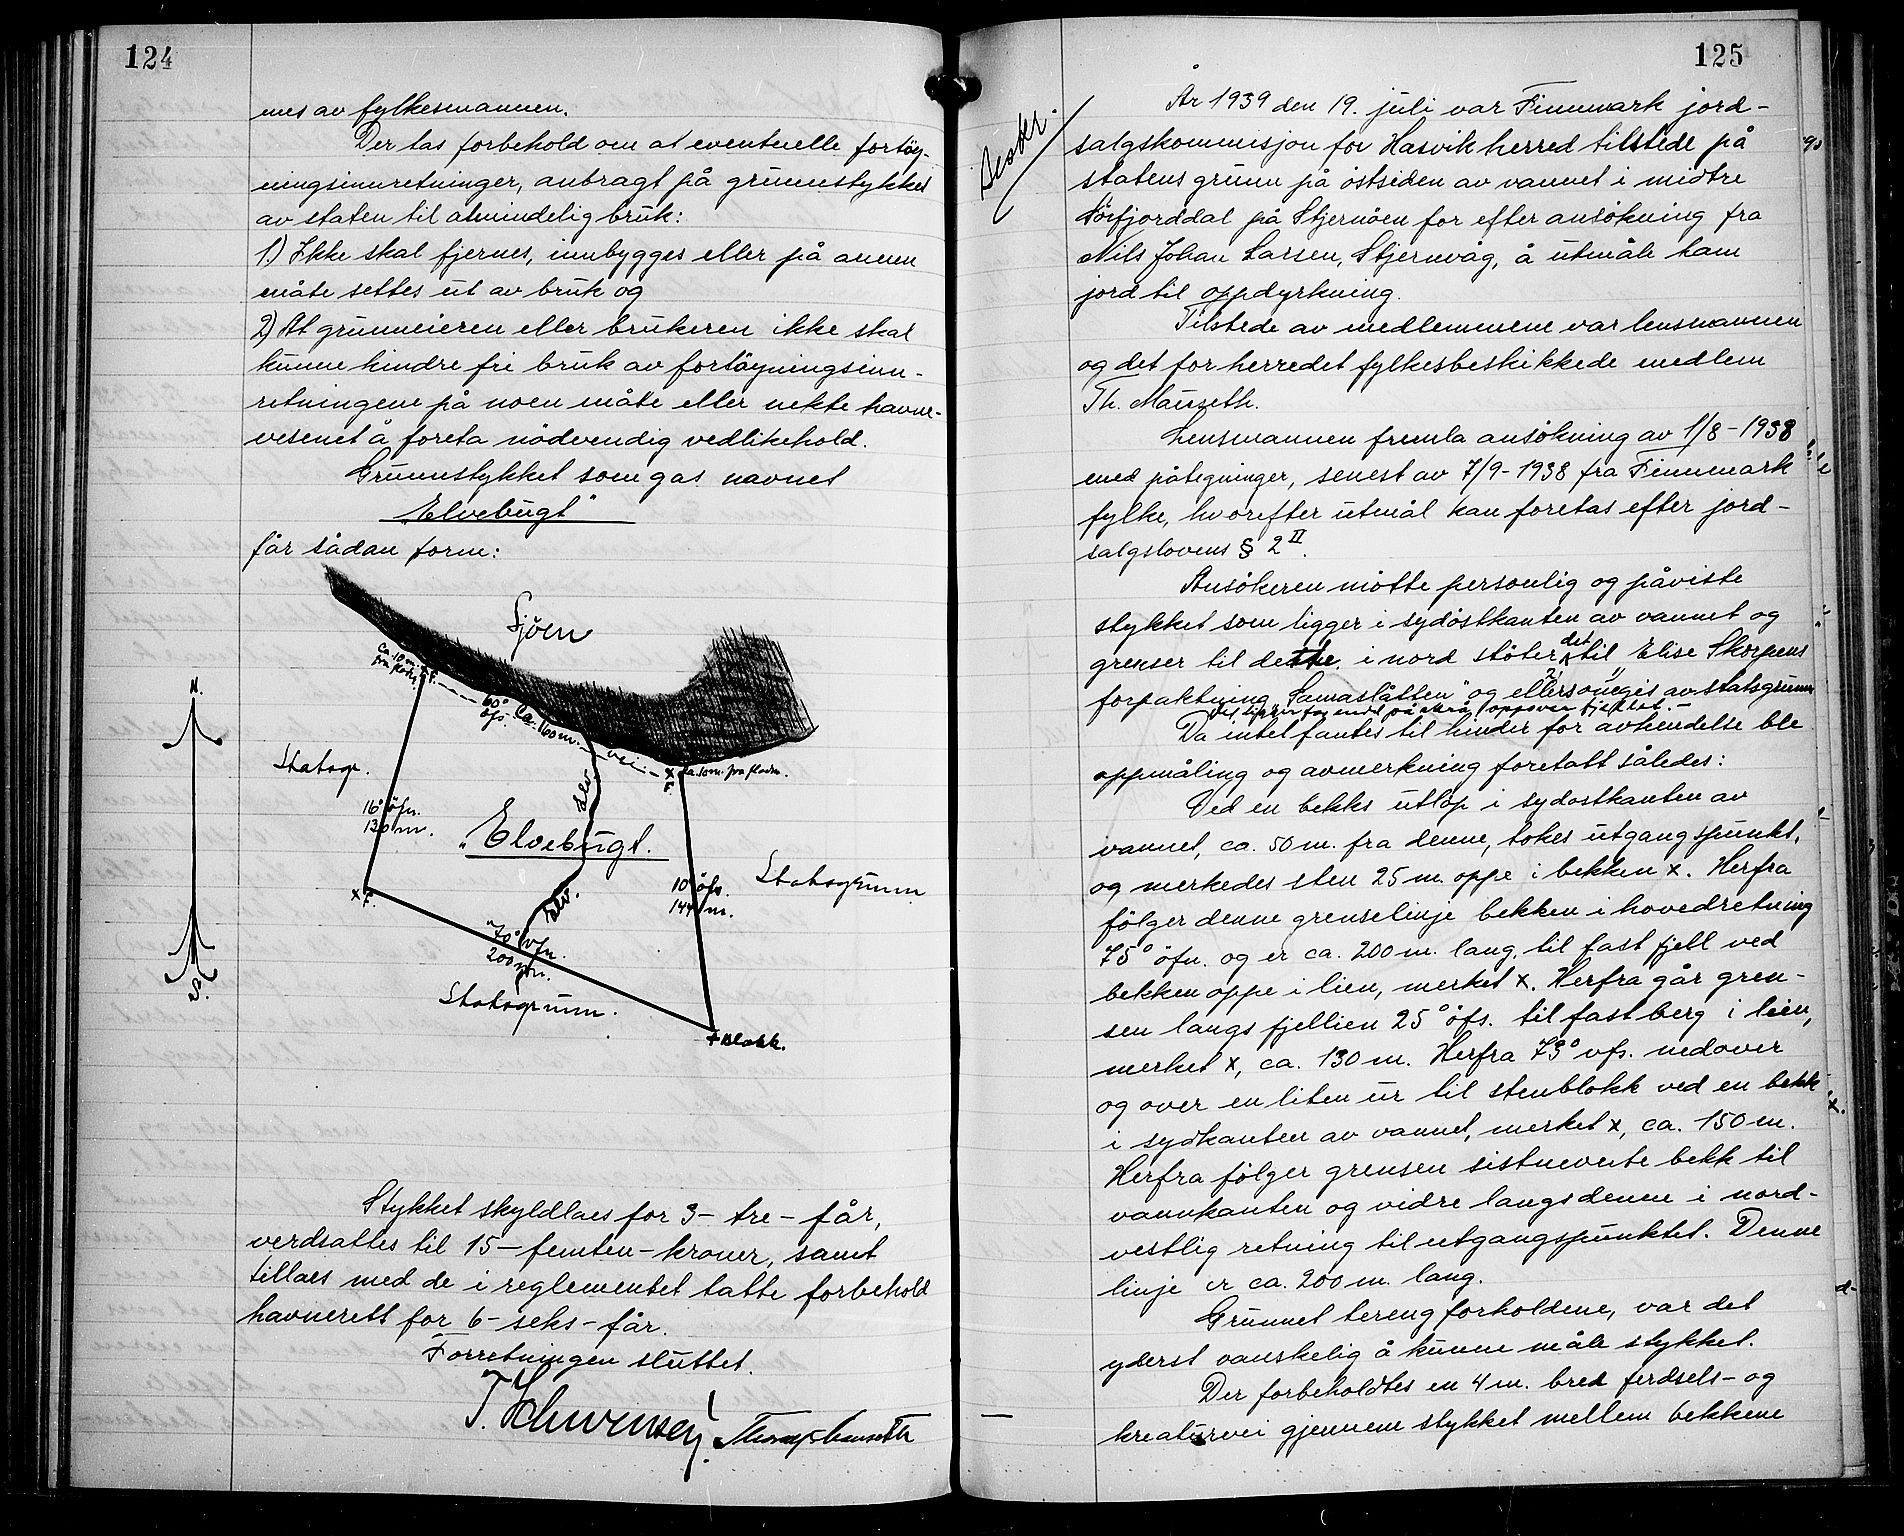 124
nes av fylkesmannen.
Der tas forbehold om at eventuelle fortöy-
ningsinnretninger, anbragt på grunnstykket
av staten til almindelig bruk:
1.) Ikke skal fjernes, innbygges eller på annen
måte settes ut av bruk og
2) At grunneieren eller brukeren ikke skal
kunne hindre fri bruk av fortöyningsinn-
retningene på noen måte eller nekte havne-
vesenet å foreta nödvendig vedlikehold.
Grunnstykket som gas navnet
"Elvebugt"
får sådan form:
Sjöen
ca. 10 m. fra flodm.
F.
60° öfs. ca. 160 m.
vei
x F.
ca. 10 m. fra flodm.
N.
Statsgr.
16° öfn.
130 m.
Elv
"Elvebugt."
Statsgrunn
10° öfs.
144 m.
x F.
Elv.
70° vfn.
200 m.
Statsgrunn.
+ Blokk.
S.
Stykket skyldlaes for 3- tre- får,
verdsattes til 15- femten- kroner, samt
tillaes med de i reglementet tatte forbehold
havnerett for 6- seks- får.
Forretningen sluttet.
125
År 1939 den 19. juli var Finnmark jord-
salgskommisjon for Hasvik herred tilstede på
statens grunn på östsiden av vannet i midtre
Sörfjorddal på Stjernöen for efter ansökning fra
Nils Johan Larsen, Stjernvåg, å utmåle ham
jord til oppdyrkning.
Tilstede av medlemmene var lensmannen
og det for herredet fylkesbeskikkede medlem
Th. Mauseth.
Lensmannen fremla ansökning av 1/8-1938
med påtegninger, senest av 7/9-1938 fra Finnmark
fylke, hvorefter utmål kan foretas efter jord-
salgslovens § 2 II.
Ansökeren mötte personlig og påviste
stykket som ligger i sydöstkanten av vannet og
grenser til dette. i nord stöter det til Elise Skorpens
forpaktning "Samaslåtten" og ellers omgis av statsgrunn
Da intet fantes til hinder for avhendelse ble
oppmåling og avmerkning foretatt således:
Ved en bekks utlöp i sydostkanten av
vannet, ca. 50 m. fra denne, tokes utgangspunkt,
og merkedes sten 25 m. oppe i bekken x. Herfra
fölger denne grenselinje bekken i hovedretning
75° öfn. og er ca. 200 m. lang, til fast fjell ved
bekken oppe i lien, merket x. Herfra går gren-
sen langs fjellien 25° öfs. til fast berg i lien,
merket x, ca. 130 m. Herfra 73° vfs. nedover
og over en liten ur til stenblokk ved en bekk
i sydkanten av vannet, merket x, ca. 150 m.
Herfra fölger grensen sistnevnte bekk til
vannkanten og vidre langs denne i nord-
vestlig retning til utgangspunktet. Denne
linje er ca. 200 m. lang.
Grunnet terengforholdene, var det
yderst vanskelig å kunne måle stykket.
Der forbeholdtes en 4 m. bred ferdsels- og
kreaturvei gjennem stykket mellem bekkene